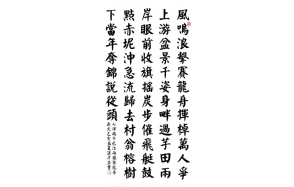 風鳴浪擊賽龍舟揮棹萬人爭
上游盆景千姿身畔過芋田兩
岸眼前收旗搖炭步催飛艇鼓
點赤坭沖急流歸去村翁榕樹
下當年奪錦說從頭